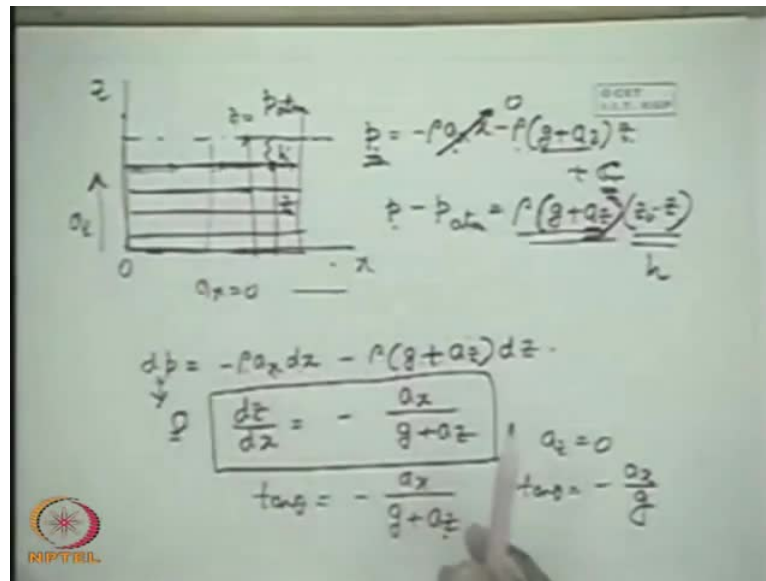 z
z = p_atm
h
z
a_z
0
x
a_x = 0
O CET
I.I.T. KGP
0
p = -ρa_x x - ρ(g+a_z)z
+ C
p - p_atm = ρ(g+a_z)(z_0-z)
h
dp = -ρa_x dx - ρ(g+a_z)dz.
0
dz/dx = - a_x/(g+a_z)
a_z = 0
tanθ = - a_x/(g+a_z)
tanθ = - a_x/g
NPTEL